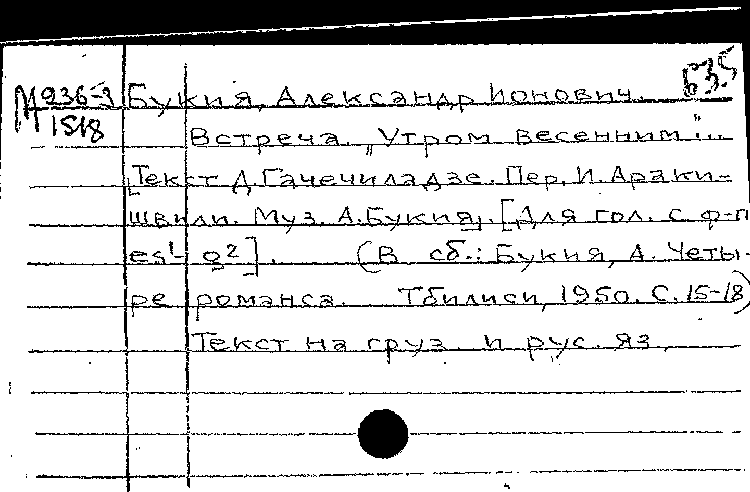 М 236-9 Букия, Александр Ионович. Б35
1518
Встреча. "Утром весенним"...
[Текст Д. Гачечиладзе. Пер. И. Араки-
швили. Муз. А. Букия]. [Для гол. с ф-п
es¹- g²]. (В сб.: Букия, А. Четы-
ре романса. Тбилиси, 1950. С. 15-18)
Текст на груз. и рус. яз.